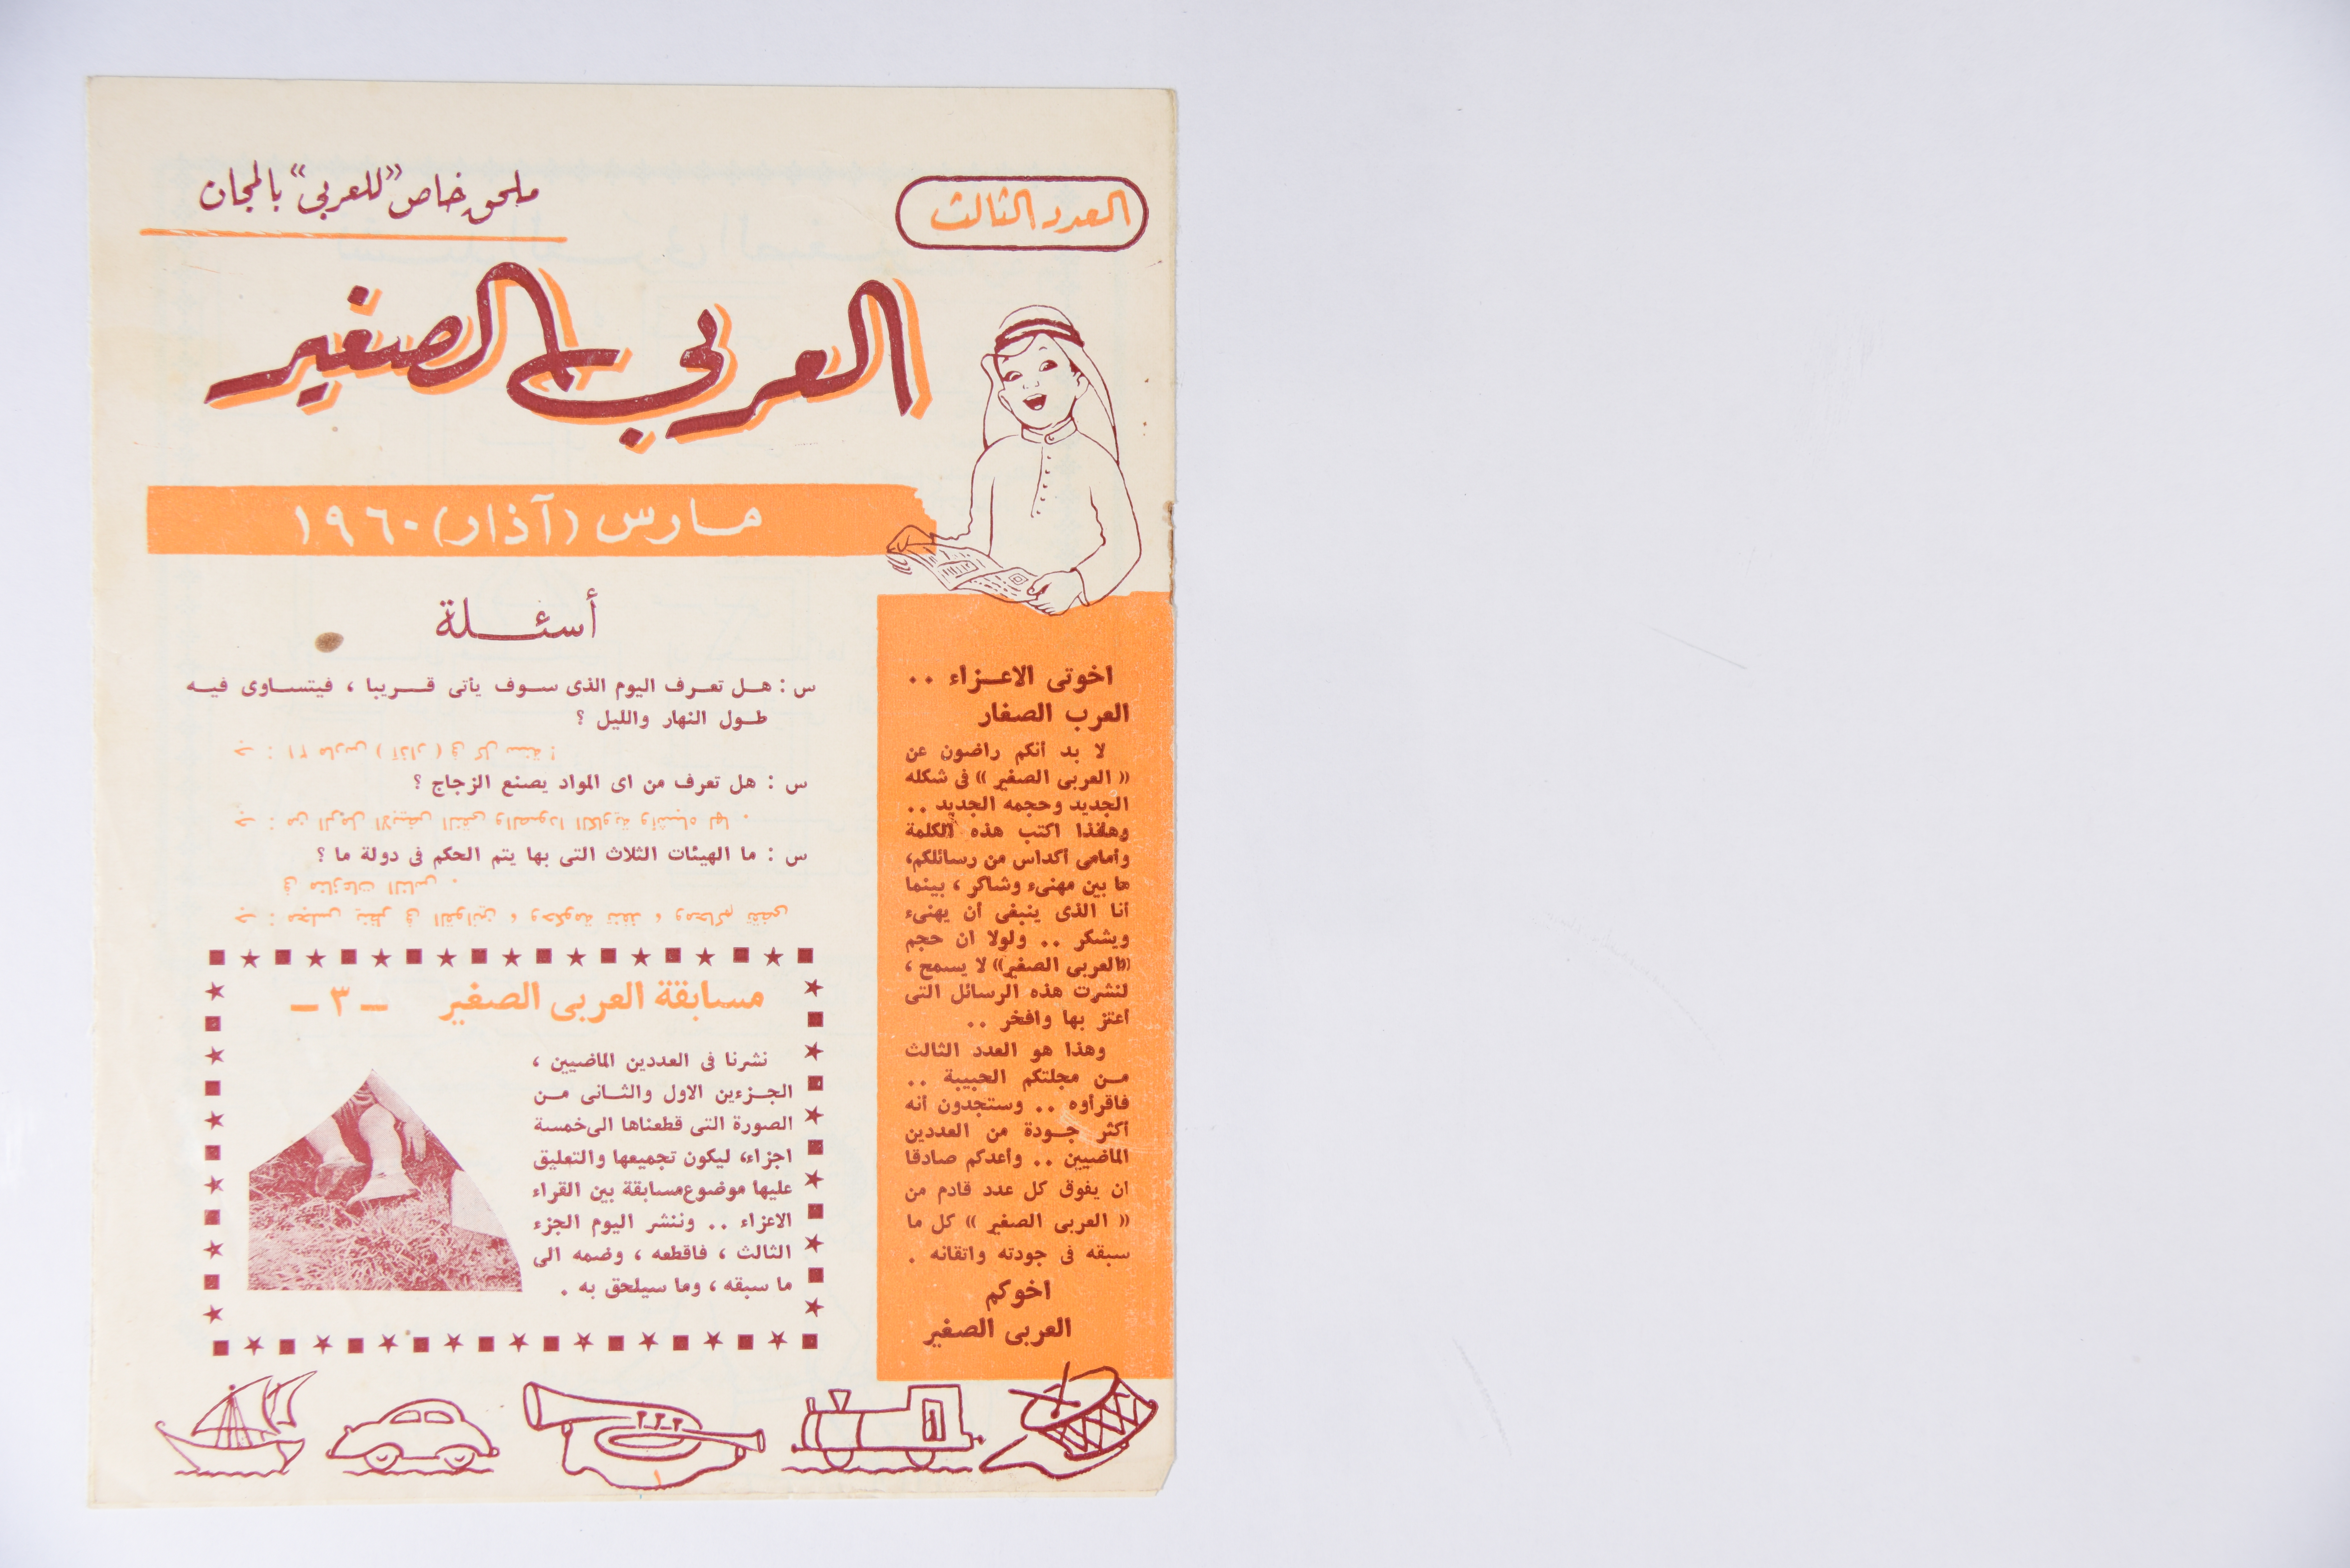 العدد الثالث
ملحق خاص "للعربى" بالمجان
العربى الصغير
مارس (آذار) ١٩٦٠
اخوتى الاعـزاء ..
العرب الصغار
لا بد أنكم راضون عن
« العربى الصغير » فى شكله
الجديد وحجمه الجديد ..
وهأنذا اكتب هذه الكلمة
وأمامى أكداس من رسائلكم،
ما بين مهنىء وشاكر ، بينما
أنا الذى ينبغى أن يهنىء
ويشكر .. ولولا ان حجم
«العربى الصغير» لا يسمح ،
لنشرت هذه الرسائل التى
أعتز بها وافخر ..
وهذا هو العدد الثالث
من مجلتكم الحبيبة ..
فاقرأوه .. وستجدون أنه
أكثر جودة من العددين
الماضيين .. وأعدكم صادقا
ان يفوق كل عدد قادم من
« العربى الصغير » كل ما
سبقه فى جودته واتقانه .
اخوكم
العربى الصغير
أسئلة
س : هل تعرف اليوم الذى سوف يأتى قريبا ، فيتساوى فيه
طول النهار والليل ؟
جـ : ٢١ مارس ( آذار ) فى كل سنة !
س : هل تعرف من اى المواد يصنع الزجاج ؟
جـ : من الرمل الابيض النقى والصودا الكاوية وأشباه لها .
س : ما الهيئات الثلاث التى بها يتم الحكم فى دولة ما ؟
جـ : مجلس ينظر فى القوانين ، وحكومة تنفذ ، ومحاكم تقضى
فى منازعات الناس .
مسابقة العربى الصغير – ٣ –
نشرنا فى العددين الماضيين ،
الجزءين الاول والثانى من
الصورة التى قطعناها الى خمسة
اجزاء، ليكون تجميعها والتعليق
عليها موضوع مسابقة بين القراء
الاعزاء .. وننشر اليوم الجزء
الثالث ، فاقطعه ، وضمه الى
ما سبقه ، وما سيلحق به .
١